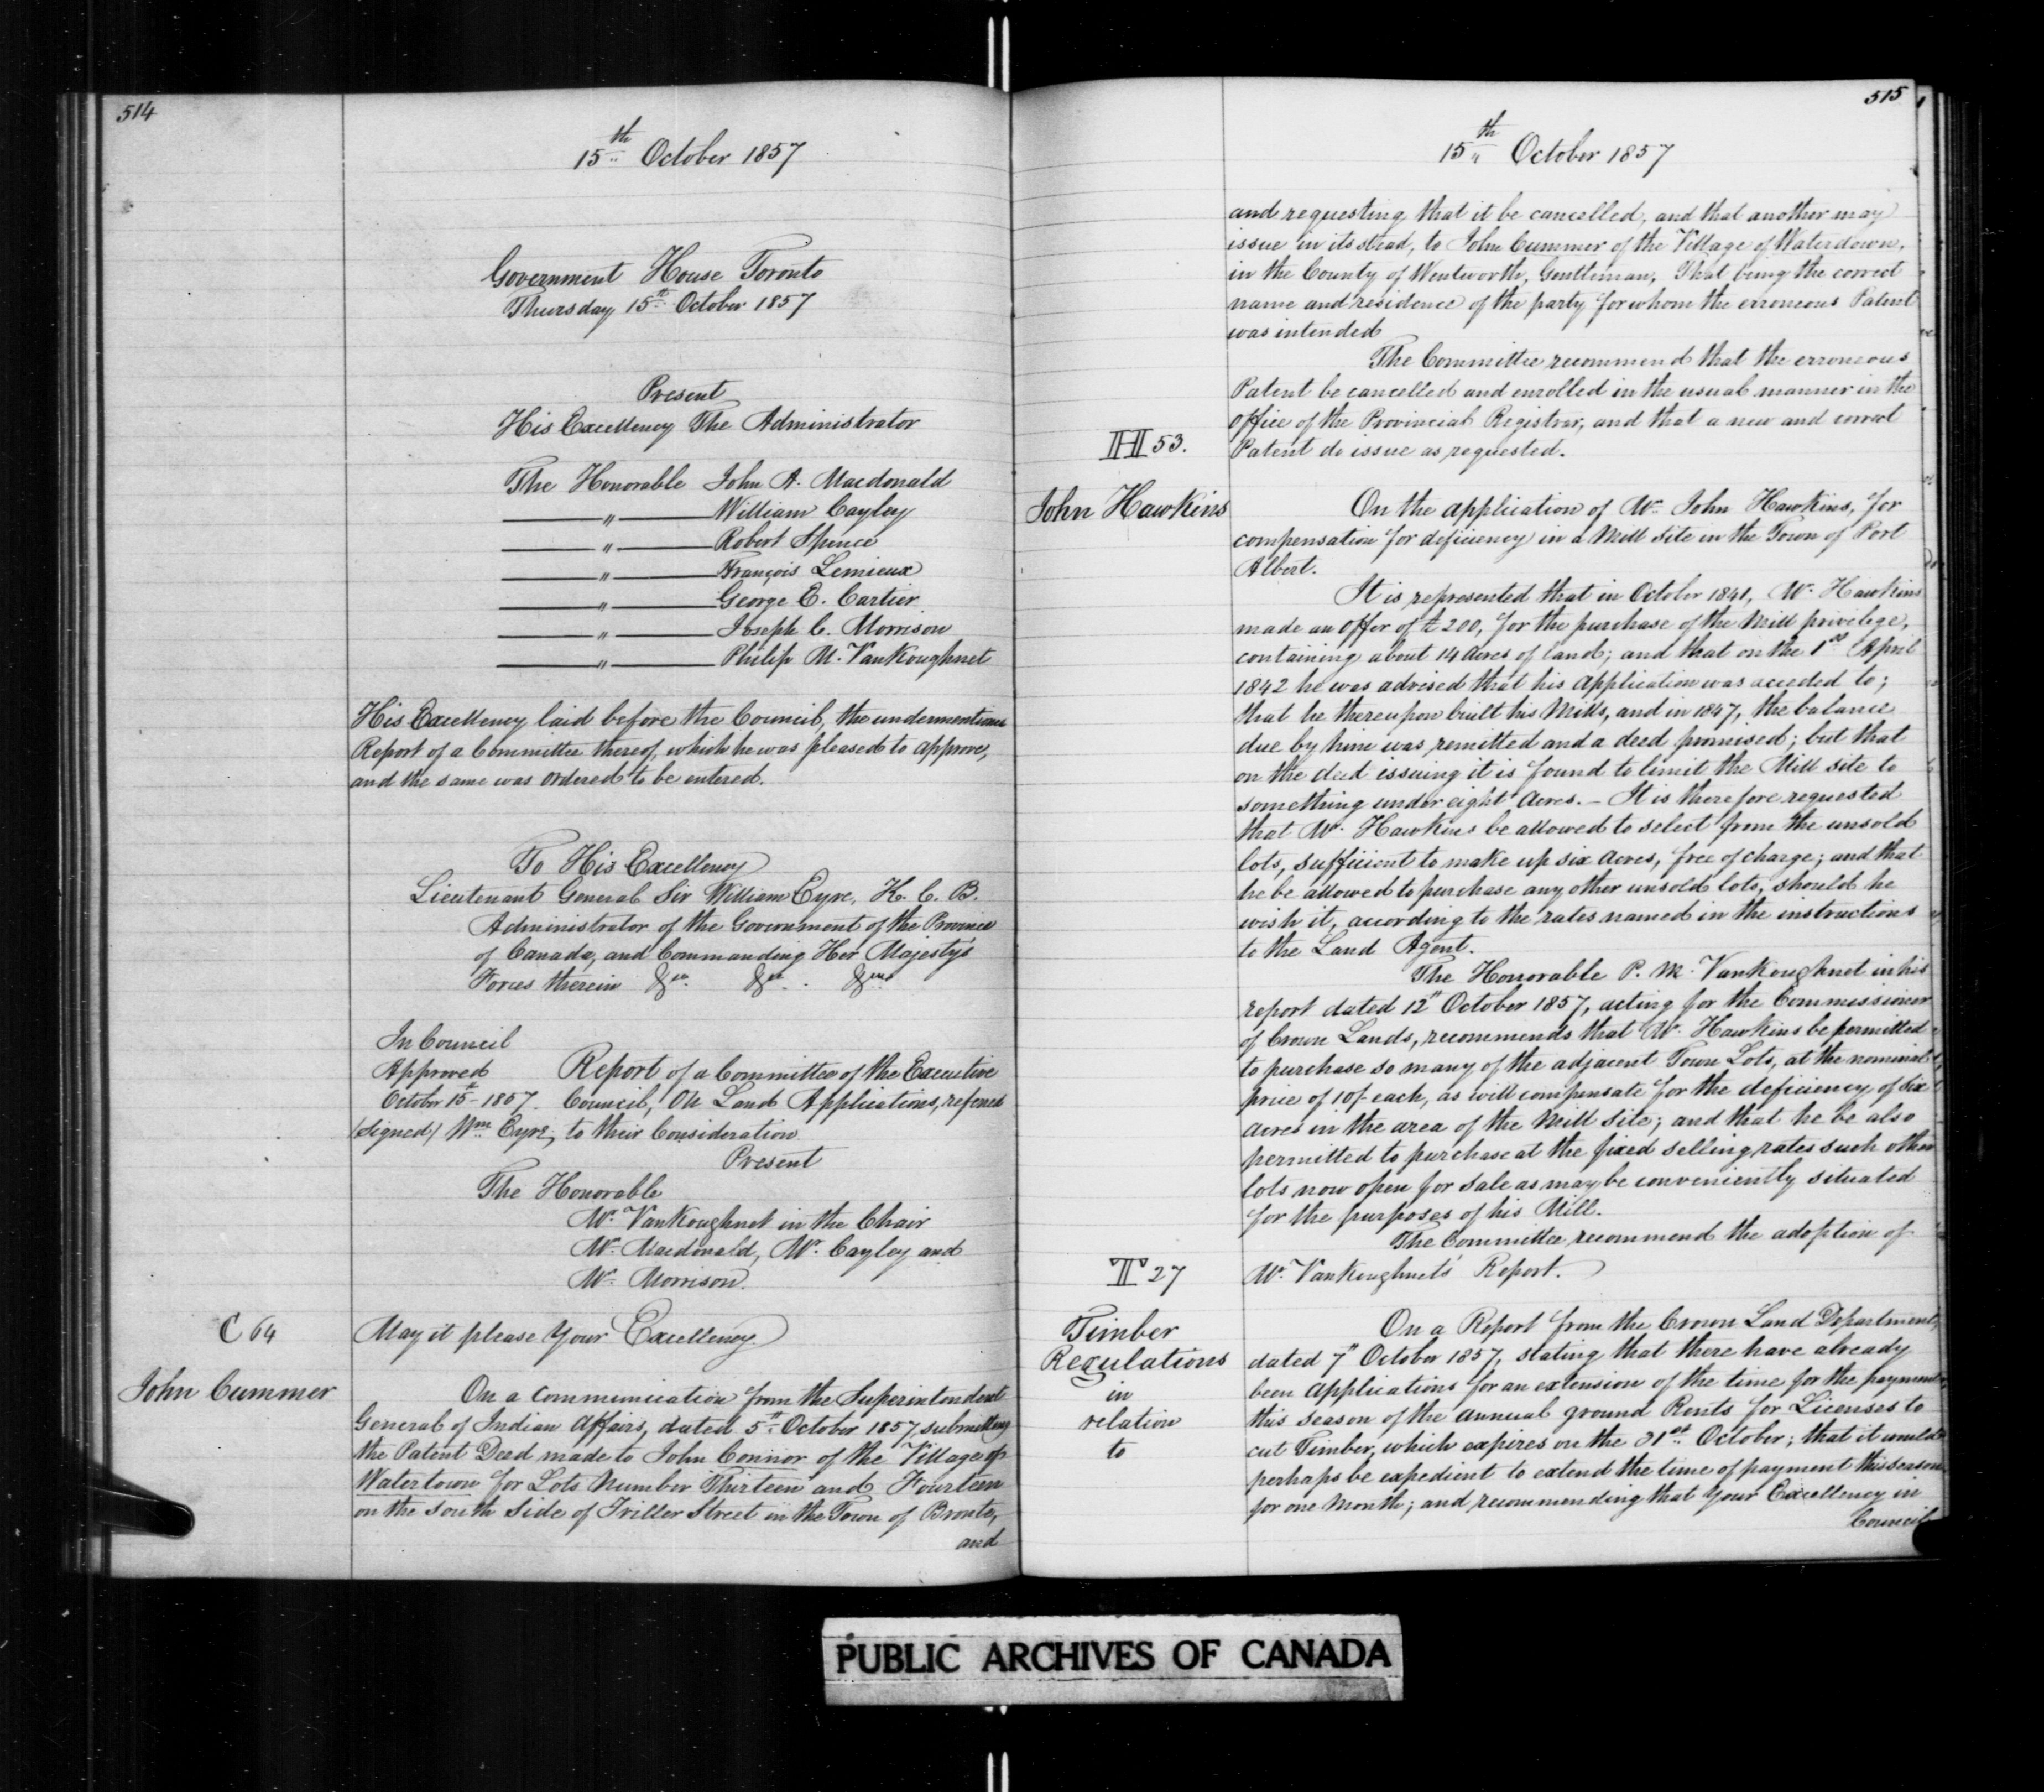 514
15th October 1857
Government House Toronto
Thursday 15th October 1857
Present
His Excellency The Administrator
The Honorable John A. Macdonald
—"— William Cayley
—"— Robert Spence
—"— François Lemieux
—"— George E. Cartier
—"— Joseph C. Morrison
—"— Philip M. VanKoughnet
His Excellency laid before the Council, the undermention
Report of a Committee thereof, which he was pleased to approve,
and the same was ordered to be entered.
To His Excellency
Lieutenant General Sir William Eyre, K. C. B.
Administrator of the Government of the Province
of Canada, and Commanding Her Majesty's
Forces therein &c. &c. &c.
In Council
Approved
October 15th 1857.
(Signed) Wm Eyre,
Report of a Committee of the Executive
Council, On Land Applications, referred
to their Consideration
Present
The Honorable
Mr. VanKoughnet in the Chair
Mr. Macdonald, Mr. Cayley and
Mr. Morrison.
C 64
May it please Your Excellency.
John Cummer
On a communication from the Superintendent
General of Indian Affairs, dated 5th October 1857, submitting
the Patent Deed made to John Connor of the Village of
Watertown for Lots Number Thirteen and Fourteen
on the South Side of Triller Street in the Town of Bronte,
and
515
15th October 1857
and requesting that it be cancelled, and that another may
issue in its stead, to John Cummer of the Village of Waterdown,
in the County of Wentworth, Gentleman, That being the correct
name and residence of the party for whom the erroneous Patent
was intended
The Committee recommend that the erroneous
Patent be cancelled and enrolled in the usual manner in the
office of the Provincial Registrar, and that a new and correct
Patent do issue as requested.
H 53.
John Hawkins
On the application of Mr. John Hawkins, for
compensation for deficiency in a Mill Site in the Town of Port
Albert.
It is represented that in October 1841, Mr. Hawkins
made an offer of £200, for the purchase of the Mill privilege,
containing about 14 acres of land; and that on the 1st April
1842 he was advised that his application was acceded to;
that he thereupon built his Mills, and in 1847, the balance
due by him was remitted and a deed promised; but that
on the deed issuing it is found to limit the Mill site to
something under eight Acres. – It is therefore requested
that Mr. Hawkins be allowed to select from the unsold
lots, sufficient to make up six acres, free of charge; and that
he be allowed to purchase any other unsold lots, should he
wish it, according to the rates named in the instructions
to the Land Agent.
The Honorable P. M. VanKoughnet in his
report dated 12" October 1857, acting for the Commissioner
of Crown Lands, recommends that Mr. Hawkins be permitted
to purchase so many of the adjacent Town Lots, at the nominal
price of 10/- each, as will compensate for the deficiency of six
acres in the area of the Mill Site; and that he be also
permitted to purchase at the fixed selling rates such other
lots now open for sale as may be conveniently situated
for the purposes of his Mill.
The Committee recommend the adoption of
Mr. VanKoughnet's Report.
T 27
Timber
Regulations
in
relation
to
On a Report from the Crown Land Department,
dated 7" October 1857, stating that there have already
been applications for an extension of the time for the payment
this season of the annual ground Rents for Licenses to
cut Timber, which expires on the 31st October; that it would
perhaps be expedient to extend the time of payment this season
for one Month; and recommending that Your Excellency in
Council
PUBLIC ARCHIVES OF CANADA